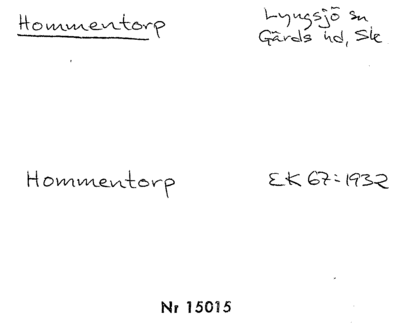 Hommentorp
Lyngsjö sn
Gärds hd, Sk
Hommentorp
EK 67:1932
Nr 15015